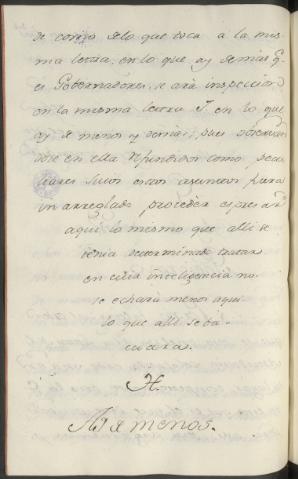 se corrio de lo que toca a la mis
ma letra, en lo que ay demas q.
es Gobernadores, se ará inspeccion
en la misma letra J. en lo que
ay de menos y demas, pues
en ella refundidos como
suios estos asuntos para
un arreglado proceder es
aqui lo mismo que alli se
tenia determinado tratar
en cuia inteligencia no
se echará menos aqui
lo que alli se ba-
ciara.
H.
Ay de menos.